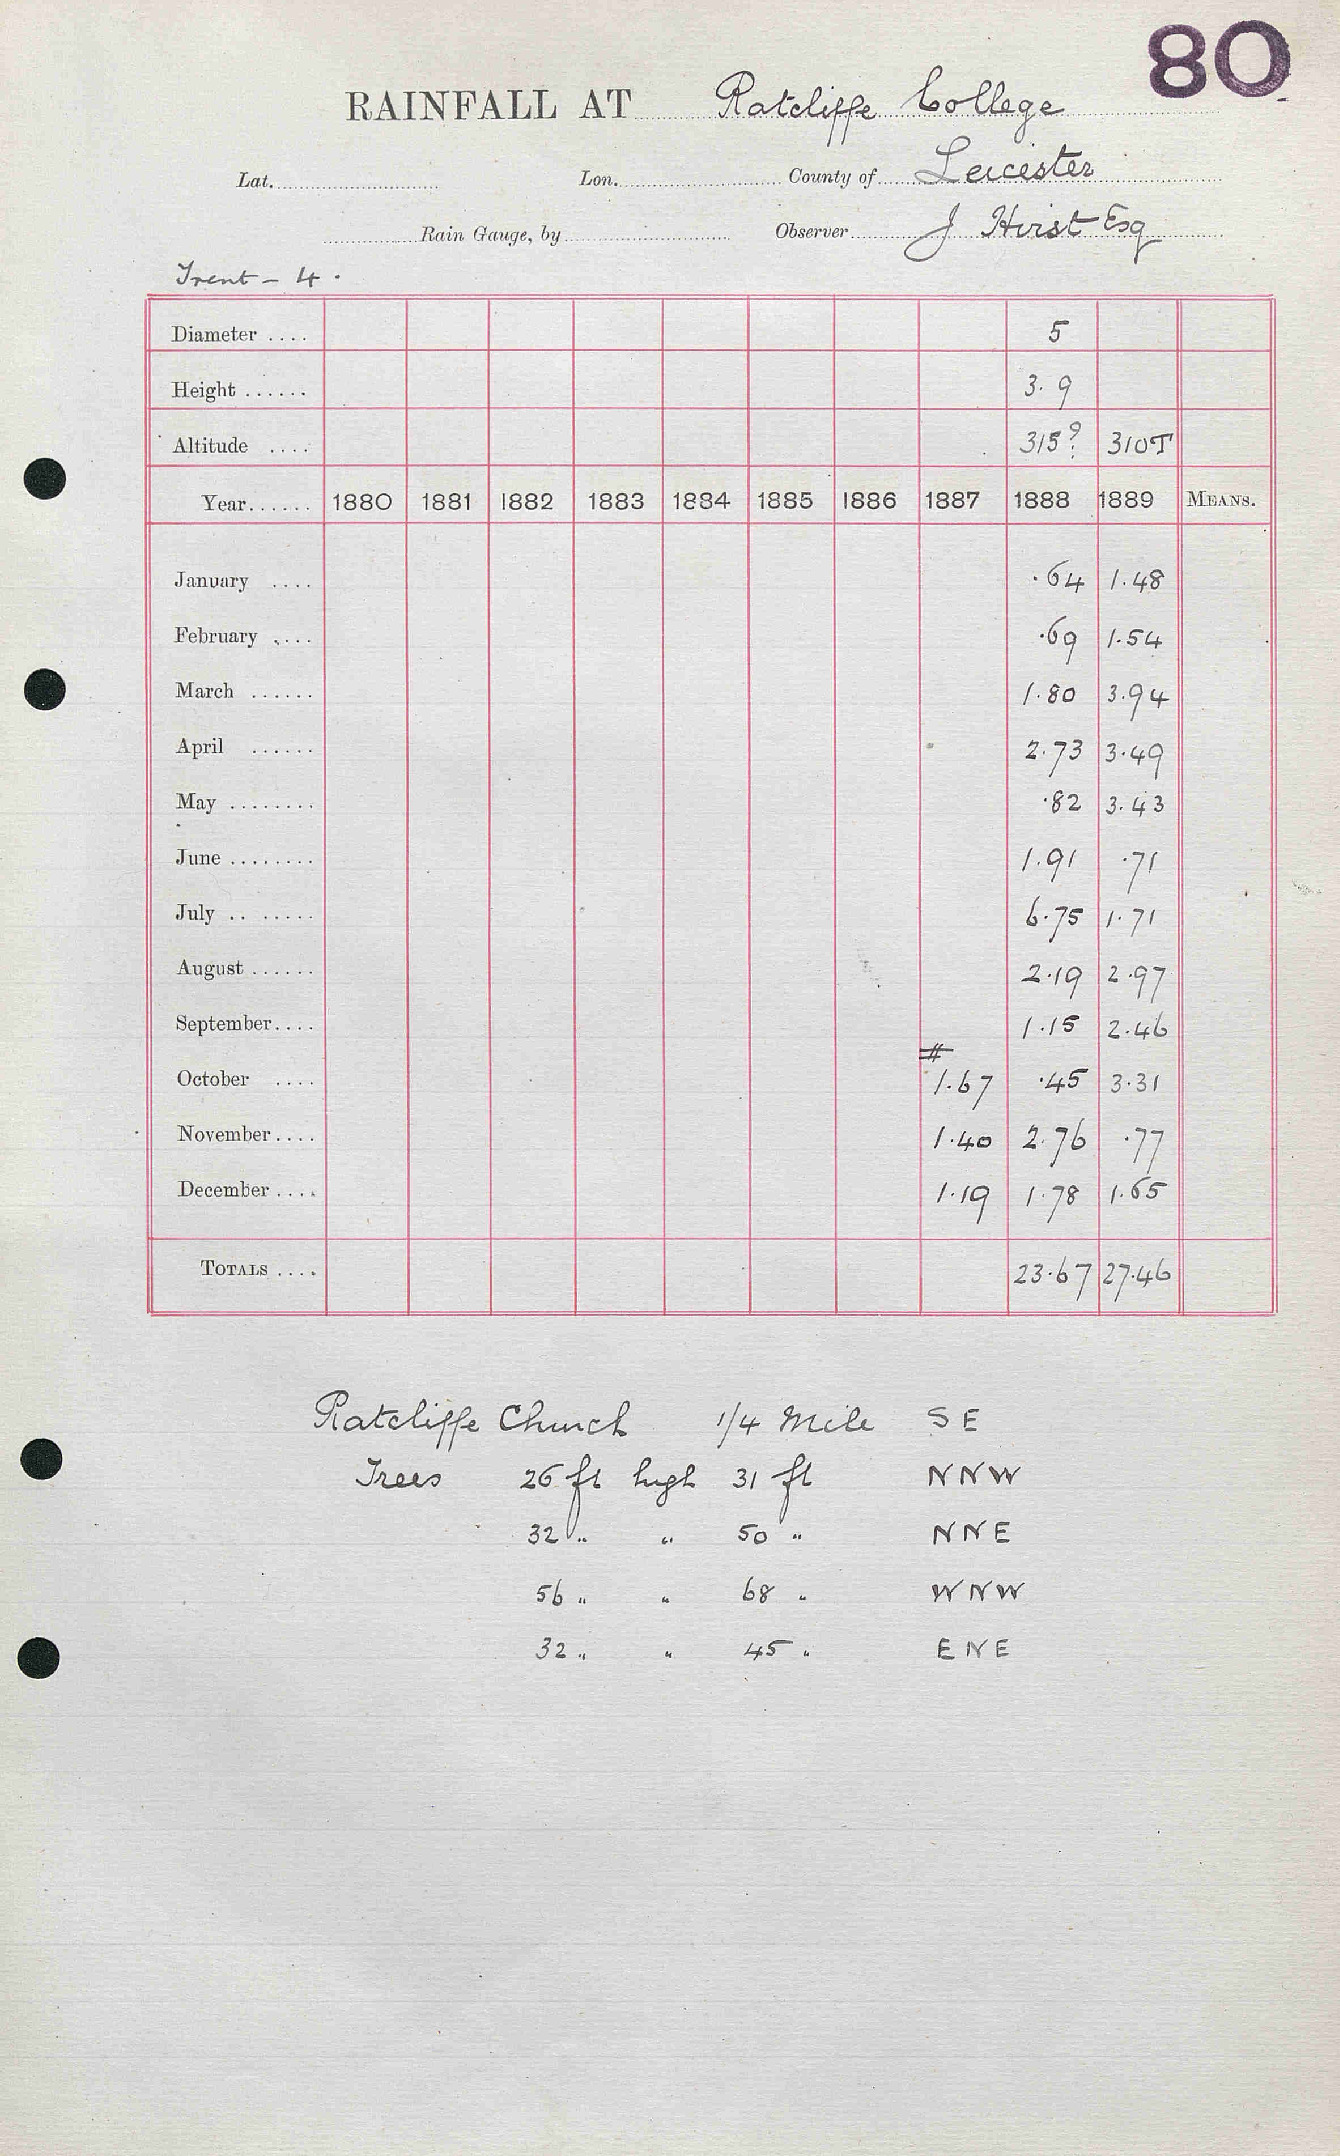 80
RAINFALL AT Ratcliffe College
Lat. Lon. County of Leicester
Rain Gauge, by Observer J Hirst Esq
Trent - 4.
Diameter .... 5
Height ...... 3.9
Altitude .... 315? 310T
Year...... 1880 1881 1882 1883 1884 1885 1886 1887 1888 1889 MEANS.
January .... .64 1.48
February .... .69 1.54
March ...... 1.80 3.94
April ...... 2.73 3.49
May ........ .82 3.43
June ........ 1.91 .71
July .. ..... 6.75 1.71
August ...... 2.19 2.97
September.... 1.15 2.46
#
October .... 1.67 .45 3.31
November.... 1.40 2.76 .77
December.... 1.19 1.78 1.65
TOTALS .... 23.67 27.46
Ratcliffe Church 1/4 Mile S E
Trees 26 ft high 31 ft N N W
32 " " 50 " N N E
56 " " 68 " W N W
32 " " 45 " E N E